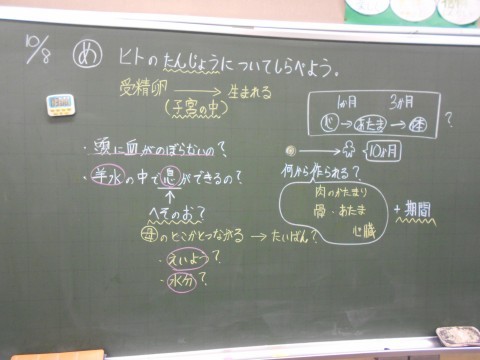 10/8 め ヒトのたんじょうについてしらべよう。
受精卵 → 生まれる
(子宮の中)
・頭に血がのぼらないの?
・羊水の中で息ができるの?
↑
へそのお?
母のどこかとつながる → たいばん?
・えいよう?
・水分?
1か月 3か月
心 → あたま → 体 ?
→ 10か月
何から作られる?
肉のかたまり
骨・あたま
心臓
+ 期間